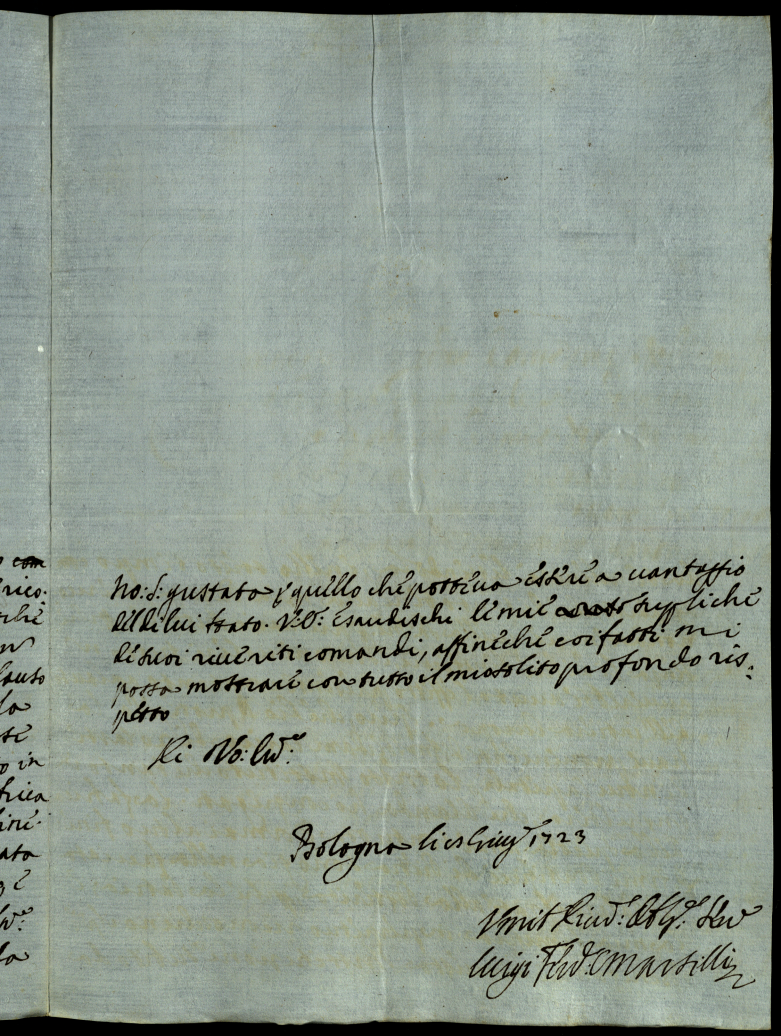 com
rico:
lauto
la
o in
ata
la
Vo: S: gustata p quello che poteva essere a vantaggio
del di lui stato. V.S: esaudischi le mie suppliche
de suoi riveriti comandi, affinché coi fatti mi
possa mostrare con tutto il mio solito profondo ris:
petto
Di Vo:
Bologna li Giug 1723
Umil Obl Ser
Luigi Ferd: Marsilli